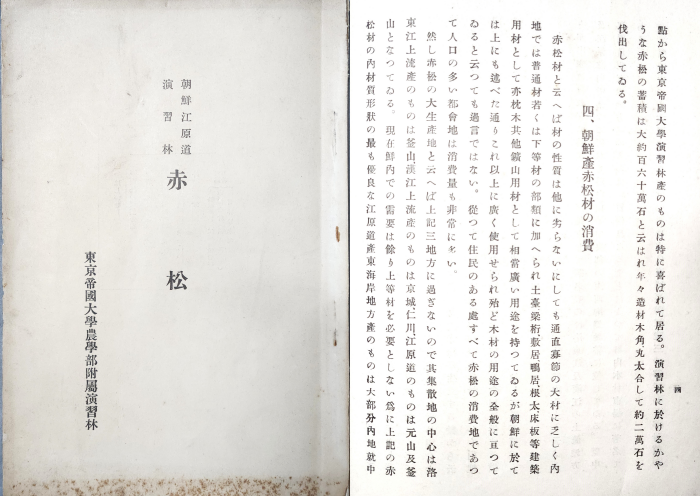 朝鮮江原道
演習林
赤松
東京帝國大學農學部附屬演習林
四
點から東京帝國大學演習林産のものは特に喜ばれて居る。演習林に於けるかや
うな赤松の蓄積は大約百六十萬石と云はれ年々造材木角、丸太合して約二萬石を
伐出してゐる。
四、朝鮮產赤松材の消費
赤松材と云へば材の性質は他に劣らないにしても通直寡節の大材に乏しく内
地では普通材若くは下等材の部類に加へられ土臺梁桁、敷居鴨居、根太床板等建築
用材として亦枕木其他鑛山用材として相當廣い用途を持つてゐるが朝鮮に於て
は上にも述べた通りこれ以上に廣く使用せられ殆ど木材の用途の全般に亘つて
ゐると云つても過言ではない。從つて住民のある處すべて赤松の消費地であつ
て人口の多い都會地は消費量も非常に多い。
然し赤松の大生產地と云へば上記三地方に過ぎないので其集散地の中心は洛
東江上流產のものは釜山、漢江上流產のものは京城仁川、江原道のものは元山及釜
山となつてゐる。現在鮮内での需要は餘り上等材を必要としない爲に上記の赤
松材の内材質形狀の最も優良な江原道產東海岸地方產のものは大部分内地就中